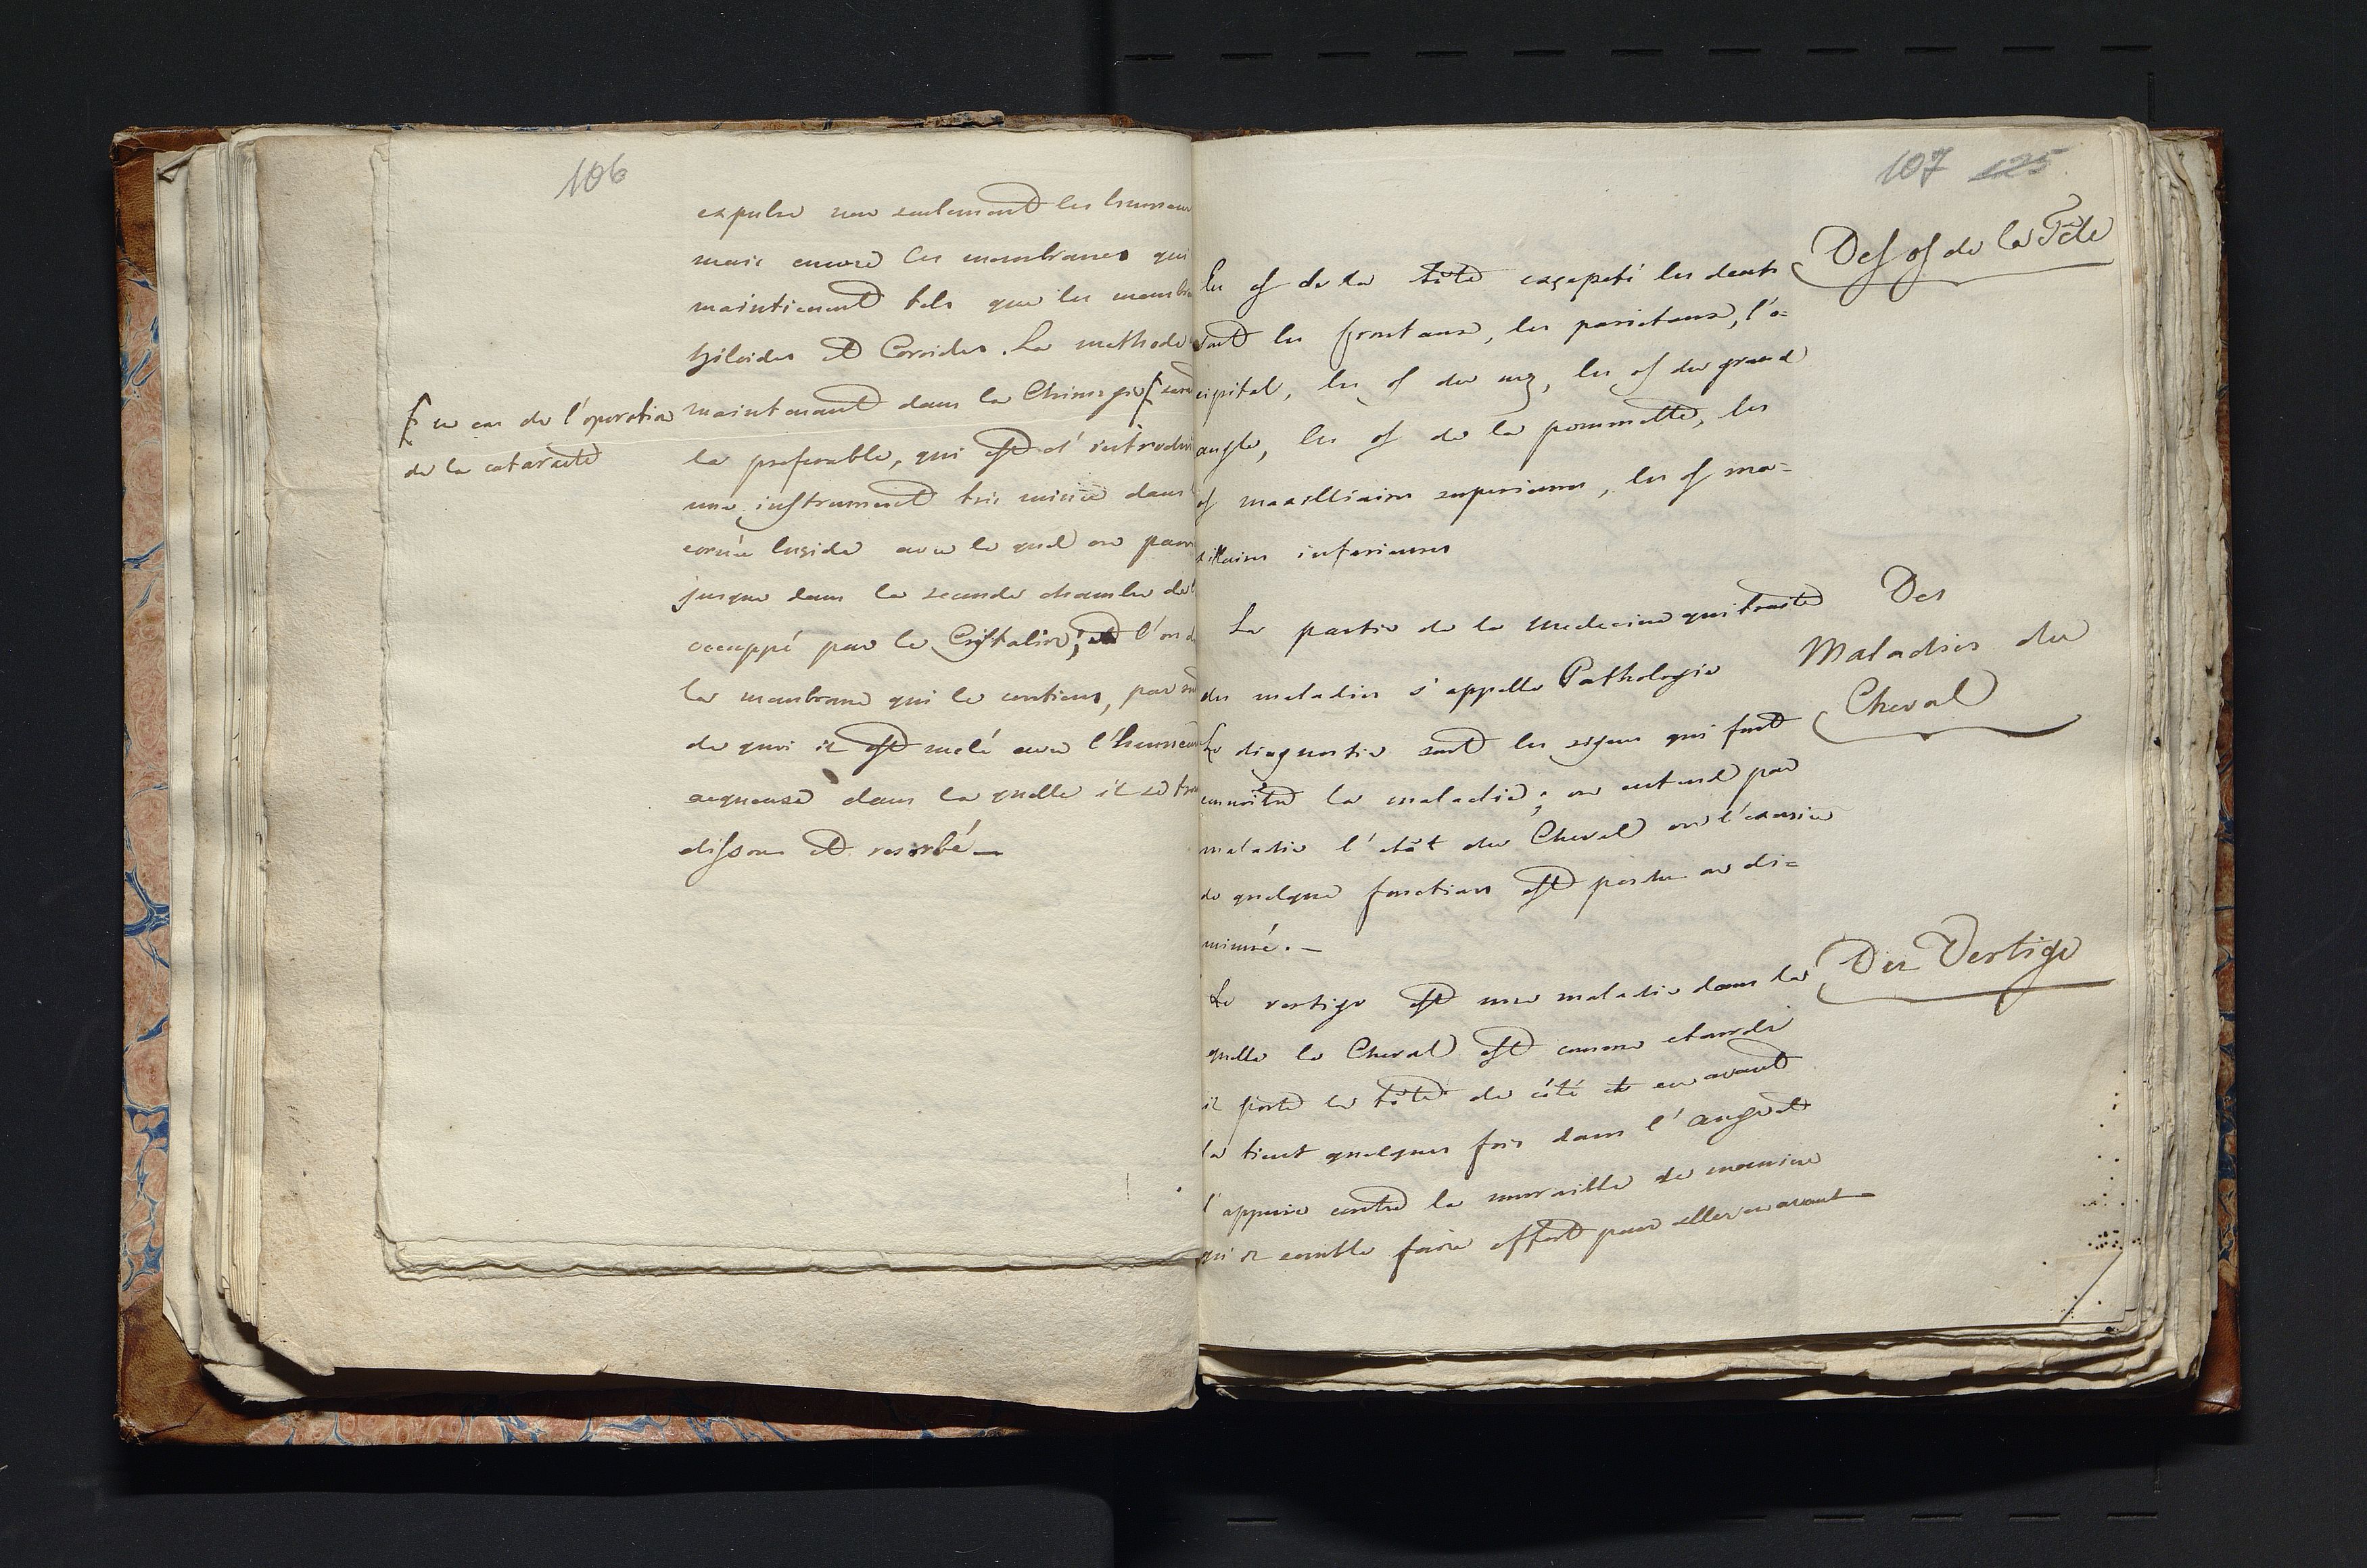 106
expulse non seulement les humeur
mais encore les membranes qui
maintienent tels que les membr
hiloides et Coroides. La methode
maintenant dans la Chirurgie sera
en cas de l'operation
de la cataracte
la preferable, qui est d'introdui
une instrument tres mince dans
cornée lusida avec le quel on parv
jusque dans la seconde chambre de
occuppé par le Cristalin; et l'on d
la membrane qui le contient, par
de quoi il est melé avec l'humeur
aequeuse dans la quelle il se trou
dissous et resorbé_
107 125
Des os de la Tête
Les os de la tête exçepeté les dents
sont les frontaux, les parietaux, l'o=
cipital, les os du nez, les os du grand
angle, les os de la pommette, les
os maxilliaires superieures, les os ma=
xillaires inferieures
Des
Maladies du
Cheval
La partie de la medecine qui traite
des maladies s'appelle Pathologie
Le diagnostic sont les signes qui font
connoitre la maladie; on entend par
maladie l'etât du Cheval ou l'exersice
de quelque fonctions est perdu ou di=
minué._
Du Vertige
Le vertige est une maladie dans la
quelle le Cheval est comme etourdi
il porte la tête de côté et en avant
la tient quelques fois dans l'auge et
l'appuie contre la muraille de maniere
qu'il semble faire effort pour aller en avant